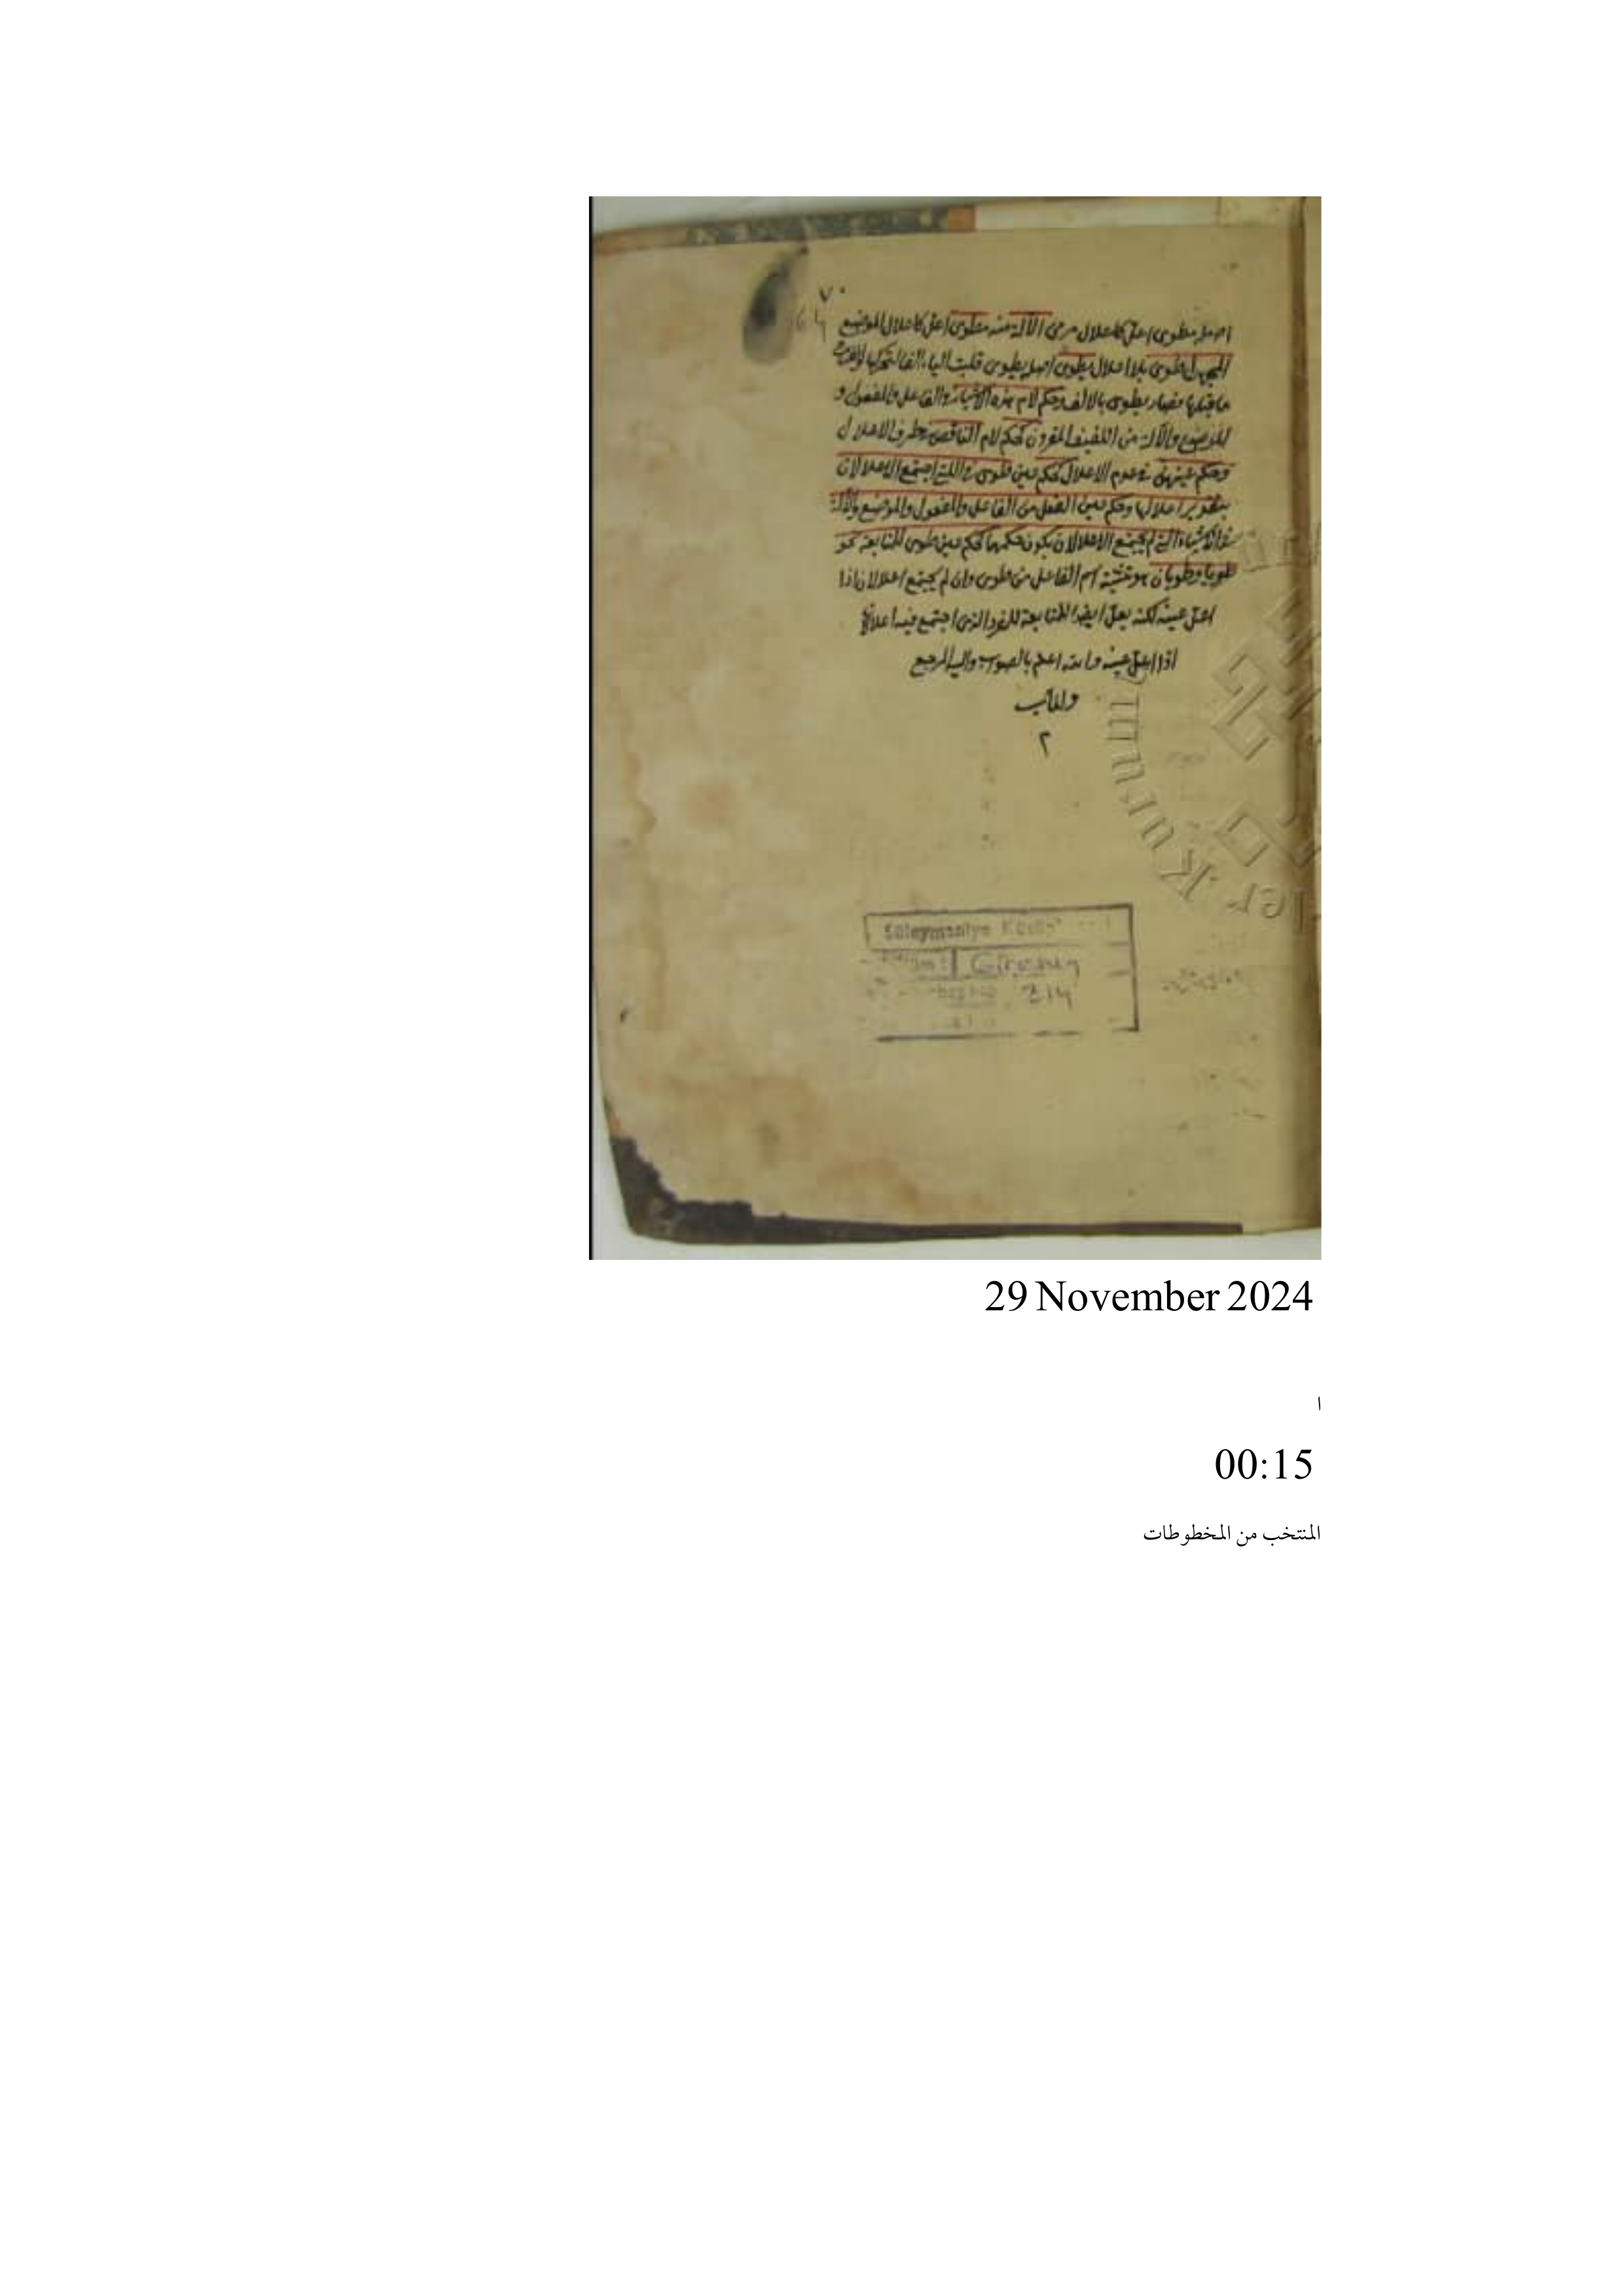 ٧٠
64
اصله مطوى اعل كاعلال مرمى الآلة منه مطوى اعل كاعلال الموضع
المجهول طوى بلا اعلال يطوى اصله يطوى قلبت الياء الفا لتحركها وانفتاح
ما قبلها فصار يطوى بالالف وحكم لام هذه الاشياء والفاعل والمفعول و
الموضع والآلة من اللفيف المقرون كحكم لام الناقص الاعلال
وحكم عينهن فى عدم الاعلال كحكم عين طوى فى اللتى اجتمع الاعلالان
بتقدير اعلالها وحكم عين الفعل من الفاعل والمفعول والموضع والآلة
الاشياء التى لم يجتمع الاعلالان يكون حكمها كحكم عين طوى للمتابعة نحو
طويا وطويان هو تثنية اسم الفاعل من طوى وان لم يجتمع اعلالان اذا
اعل عينه لكنه يعل ايضا للمتابعة للمفرد الذى اجتمع فيه اعلالان
اذا اعل عينه والله اعلم بالصواب واليه المرجع
والمآب
٢
Süleymaniye
Giresun
214
29 November 2024
ا
00:15
المنتخب من المخطوطات